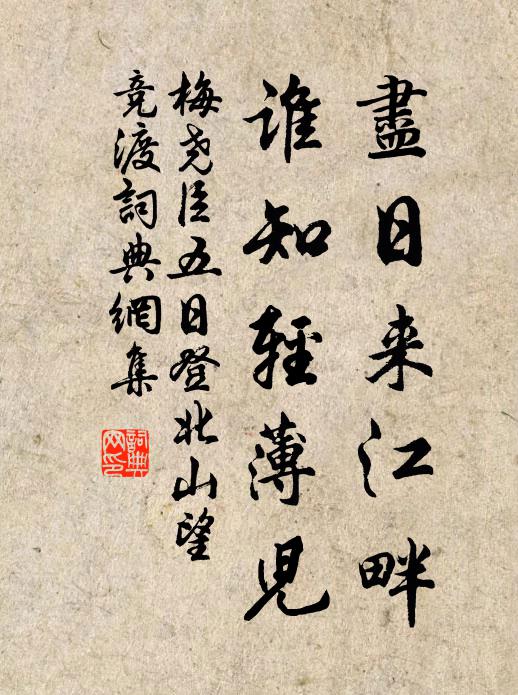 盡日来江畔
誰知輕薄兒
梅堯臣五日登北山望
竞渡詞典網集
詞典
网印